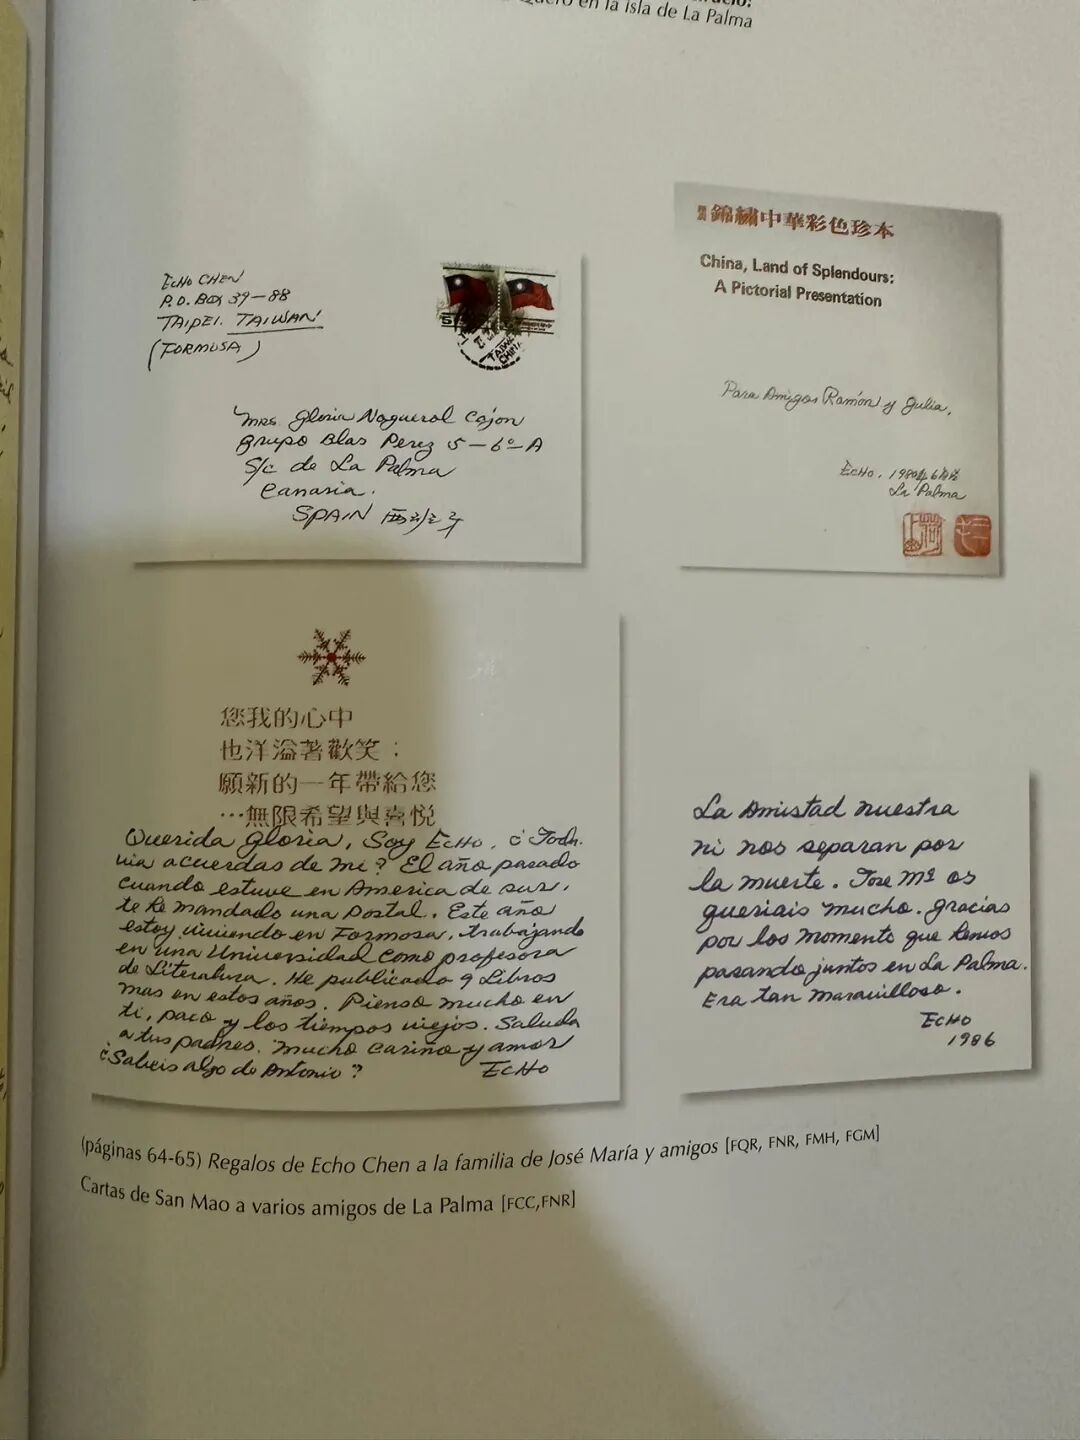 en la isla de La Palma
ECHO CHEN
P.O. BOX 39-88
TAIPEI. TAIWAN
(FORMOSA)
TAIWAN
CHINA
Mrs. Gloria Noguerol Cajon
Grupo Blas Perez 5-6º-A
S/c de La Palma
Canaria.
SPAIN 西班牙
錦繡中華彩色珍本
China, Land of Splendours:
A Pictorial Presentation
Para Amigos Ramón y Julia,
ECHO. 1980年6月
La Palma
三毛
您我的心中
也洋溢著歡笑；
願新的一年帶給您
…無限希望與喜悅
Querida Gloria, Soy ECHO. ¿Toda-
via acuerdas de me? El año pasado
cuando estuve en America de sur,
te he mandado una postal. Este año
estoy viviendo en Formosa, trabajando
en una Universidad como profesora
de Literatura. He publicado 9 Libros
mas en estos años. Pienso mucho en
ti, paco y los tiempos viejos. Saluda
a tus padres. Mucho cariño y amor
¿Sabeis algo de Antonio? ECHO
La Amistad nuestra
ni nos separan por
la muerte. Jose Mª os
queriais mucho. Gracias
por los momento que hemos
pasando juntos en La Palma.
Era tan maravilloso.
ECHO
1986
(páginas 64-65) Regalos de Echo Chen a la familia de José María y amigos [FQR, FNR, FMH, FGM]
Cartas de San Mao a varios amigos de La Palma [FCC,FNR]